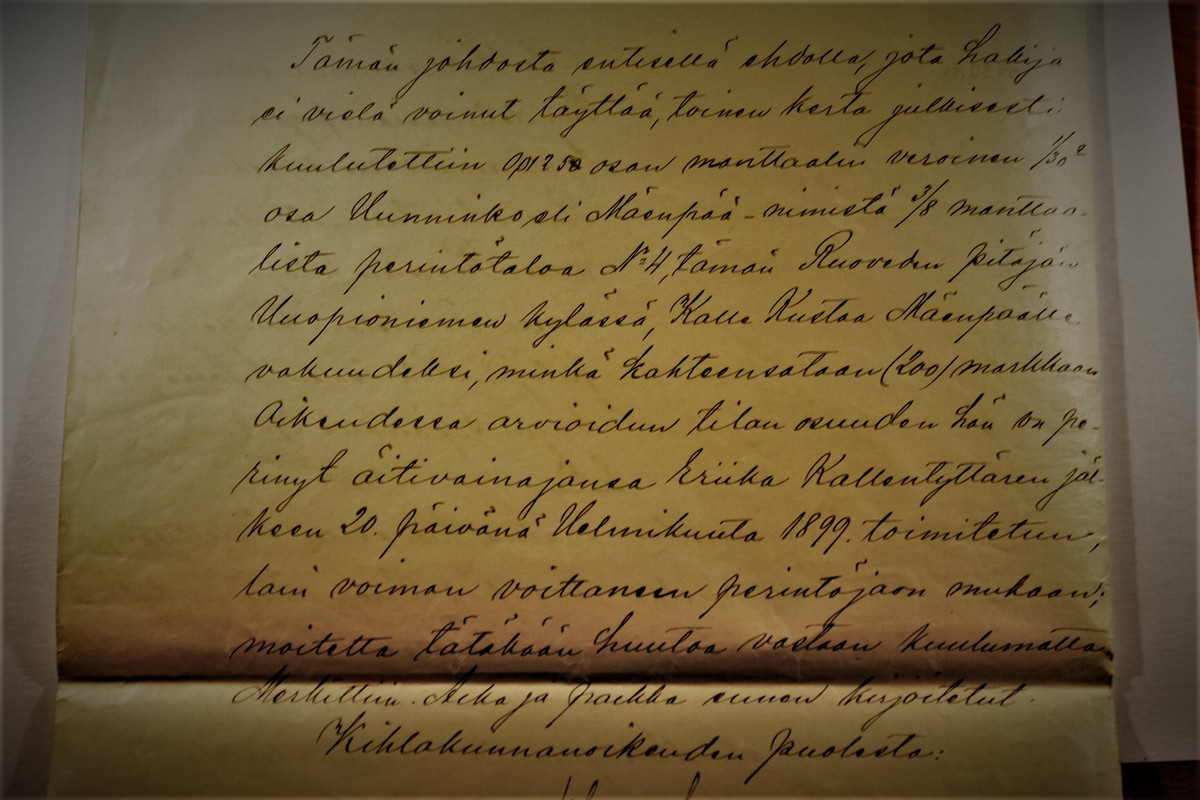 Tämän johdosta entisellä ehdolla, jota hakija
ei vielä voinut täyttää, toinen kerta julkisesti
kuulutettiin 0,0125 osan manttaalin veroinen 1/30
osa Uuninkosti Mäenpää-nimistä 3/8 manttaa-
lista perintötaloa No 4, tämän Ruoveden pitäjän
Kuopioniemen kylässä, Kalle Kustaa Mäenpäälle
vakuudeksi, minkä kahteensataan (200) markkaan
Oikeudessa arvioidun tilan osuuden hän on pe-
rinyt äitivainajansa Eriika Kallentyttären jäl-
keen 20. päivänä Helmikuuta 1899. toimitetun,
lain voiman voittaneen perintöjaon mukaan;
moitetta tätäkään huutoa vastaan kuulumatta
Merkittiin. Aika ja paikka ennen kirjoitetut.
Kihlakunnanoikeuden puolesta: